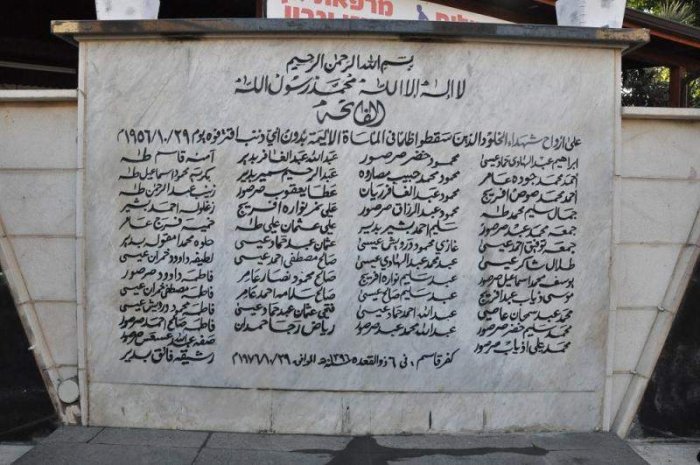 بسم الله الرحمن الرحيم
لا اله الا الله محمد رسول الله
الفاتحة
على ارواح شهداء الخلود الذين سقطوا في المأساة الاليمة بدون اي ذنب اقترفوه يوم ١٩٥٦/١٠/٢٩م
ابراهيم عبدالهادي حماد عيسى
احمد محمد جوده عامر
احمد محمد افريج
جمال سليم محمد طه
جمعه محمد صرصور
جمعه توفيق احمد عيسى
طلال شاكر عيسى
يوسف محمد اسماعيل صرصور
موسى ذياب عبد افريج
محمد سرحان عاصي
محمد سليم خضر صرصور
محمد علي اذياب صرصور
محمود خضر صرصور
محمود محمد حبيب مصاروه
محمود عبد الغافر ريان
محمود عبد الرزاق صرصور
سليم احمد بشير بدير
غازي محمود درويش عيسى
عبد محمد عبد الهادي عيسى
عبد سليم نواره افريج
عبد سليم صالح عيسى
عبد الله احمد حماد عيسى
عبد الله محمد عبد صرصور
عبد الله عبد الغافر بدير
عبد الرحيم سمير بدير
عطا يعقوب صرصور
علي نمر نواره افريج
علي عثمان علي طه
عثمان عبد حماد عيسى
صالح مصطفى احمد عيسى
صالح محمود نصار عامر
صالح سلامه احمد عامر
فتحي عثمان عبد حماد عيسى
رياض رجا حمدان
آمنة قاسم طه
بكريه محمود اسماعيل طه
زينب عبد الرحمن طه
زغلوله احمد بشير
خميسه فرج عامر
حلوه محمد بدير
لطيفه داوود حمران عيسى
فاطمه داوود صرصور
فاطمه مصطفى حمران عيسى
فاطمه محمود درويش عيسى
فاطمه صالح احمد صرصور
صفيه عبد الله صرصور
رشيقه فائق بدير
كفر قاسم، في ٦ ذو القعده ١٣٩٦ه الموافق ١٩٧٦/١٠/٢٩م